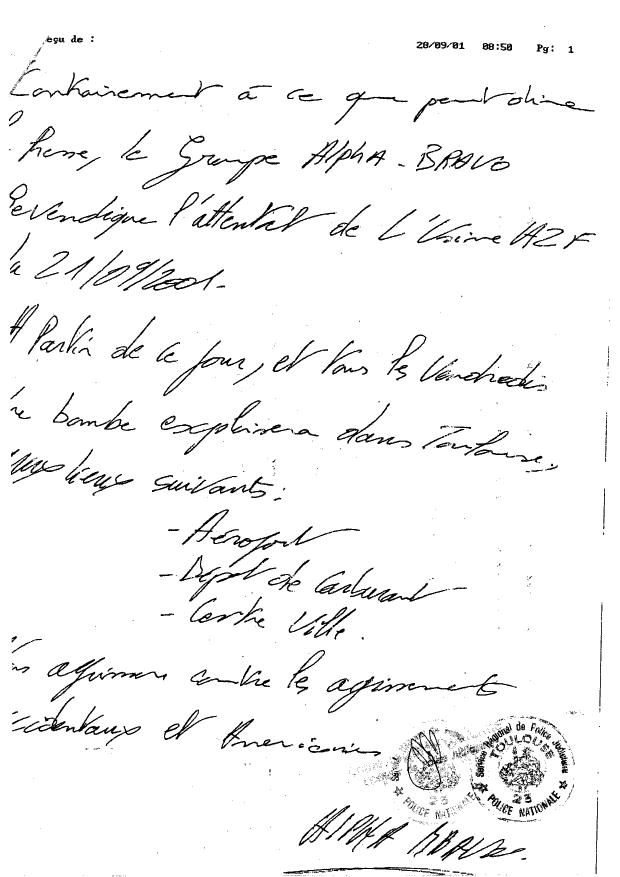 eçu de :
28/09/01 08:50 Pg: 1
Contrairement à ce que peut dire
Presse, le Groupe AlphA - BRAVO
Revendique l'attentat de L'Usine AZF
21/09/2001-
A Partir de ce jour, et tous les Vendredis
ne bombe explosera dans Toulouse,
aux lieux suivants :
- Aéroport
- Dépot de Carburant
- Centre Ville.
contre les agissements
ccidentaux et Americains
Service Régional de Police Judiciaire
TOULOUSE
23
POLICE NATIONALE
23
POLICE NATIONALE
AlPHA BRAVO.